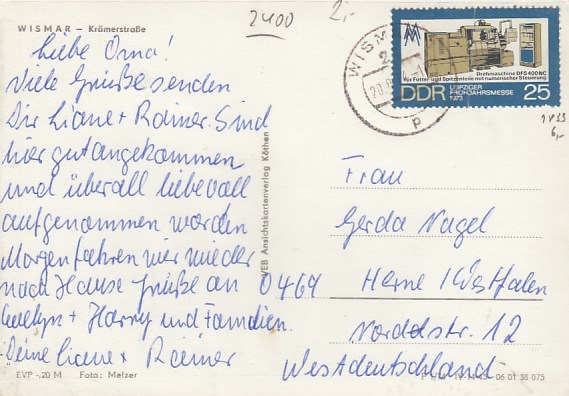 WISMAR – Krämerstraße
2400
2,-
Liebe Oma!
Viele Grüße senden
Dir Liane + Rainer. Sind
hier gut angekommen
und überall liebevoll
aufgenommen worden
Morgen fahren wir wieder
nach Hause Grüße an
Evelyn + Harry und Familien.
Deine Liane + Rainer
EVP -.20 M Foto: Melzer
VEB Ansichtskartenverlag Köthen
WISM
20.
p
Drehmaschine DFS 400 NC
für Futter- und Spitzenteile mit numerischer Steuerung
DDR LEIPZIGER FRÜHJAHRSMESSE 1973 25
6,-
Frau
Gerda Nagel
0464 Herne / Westfalen
Nordstr. 12
Westdeutschland
06 01 38 075